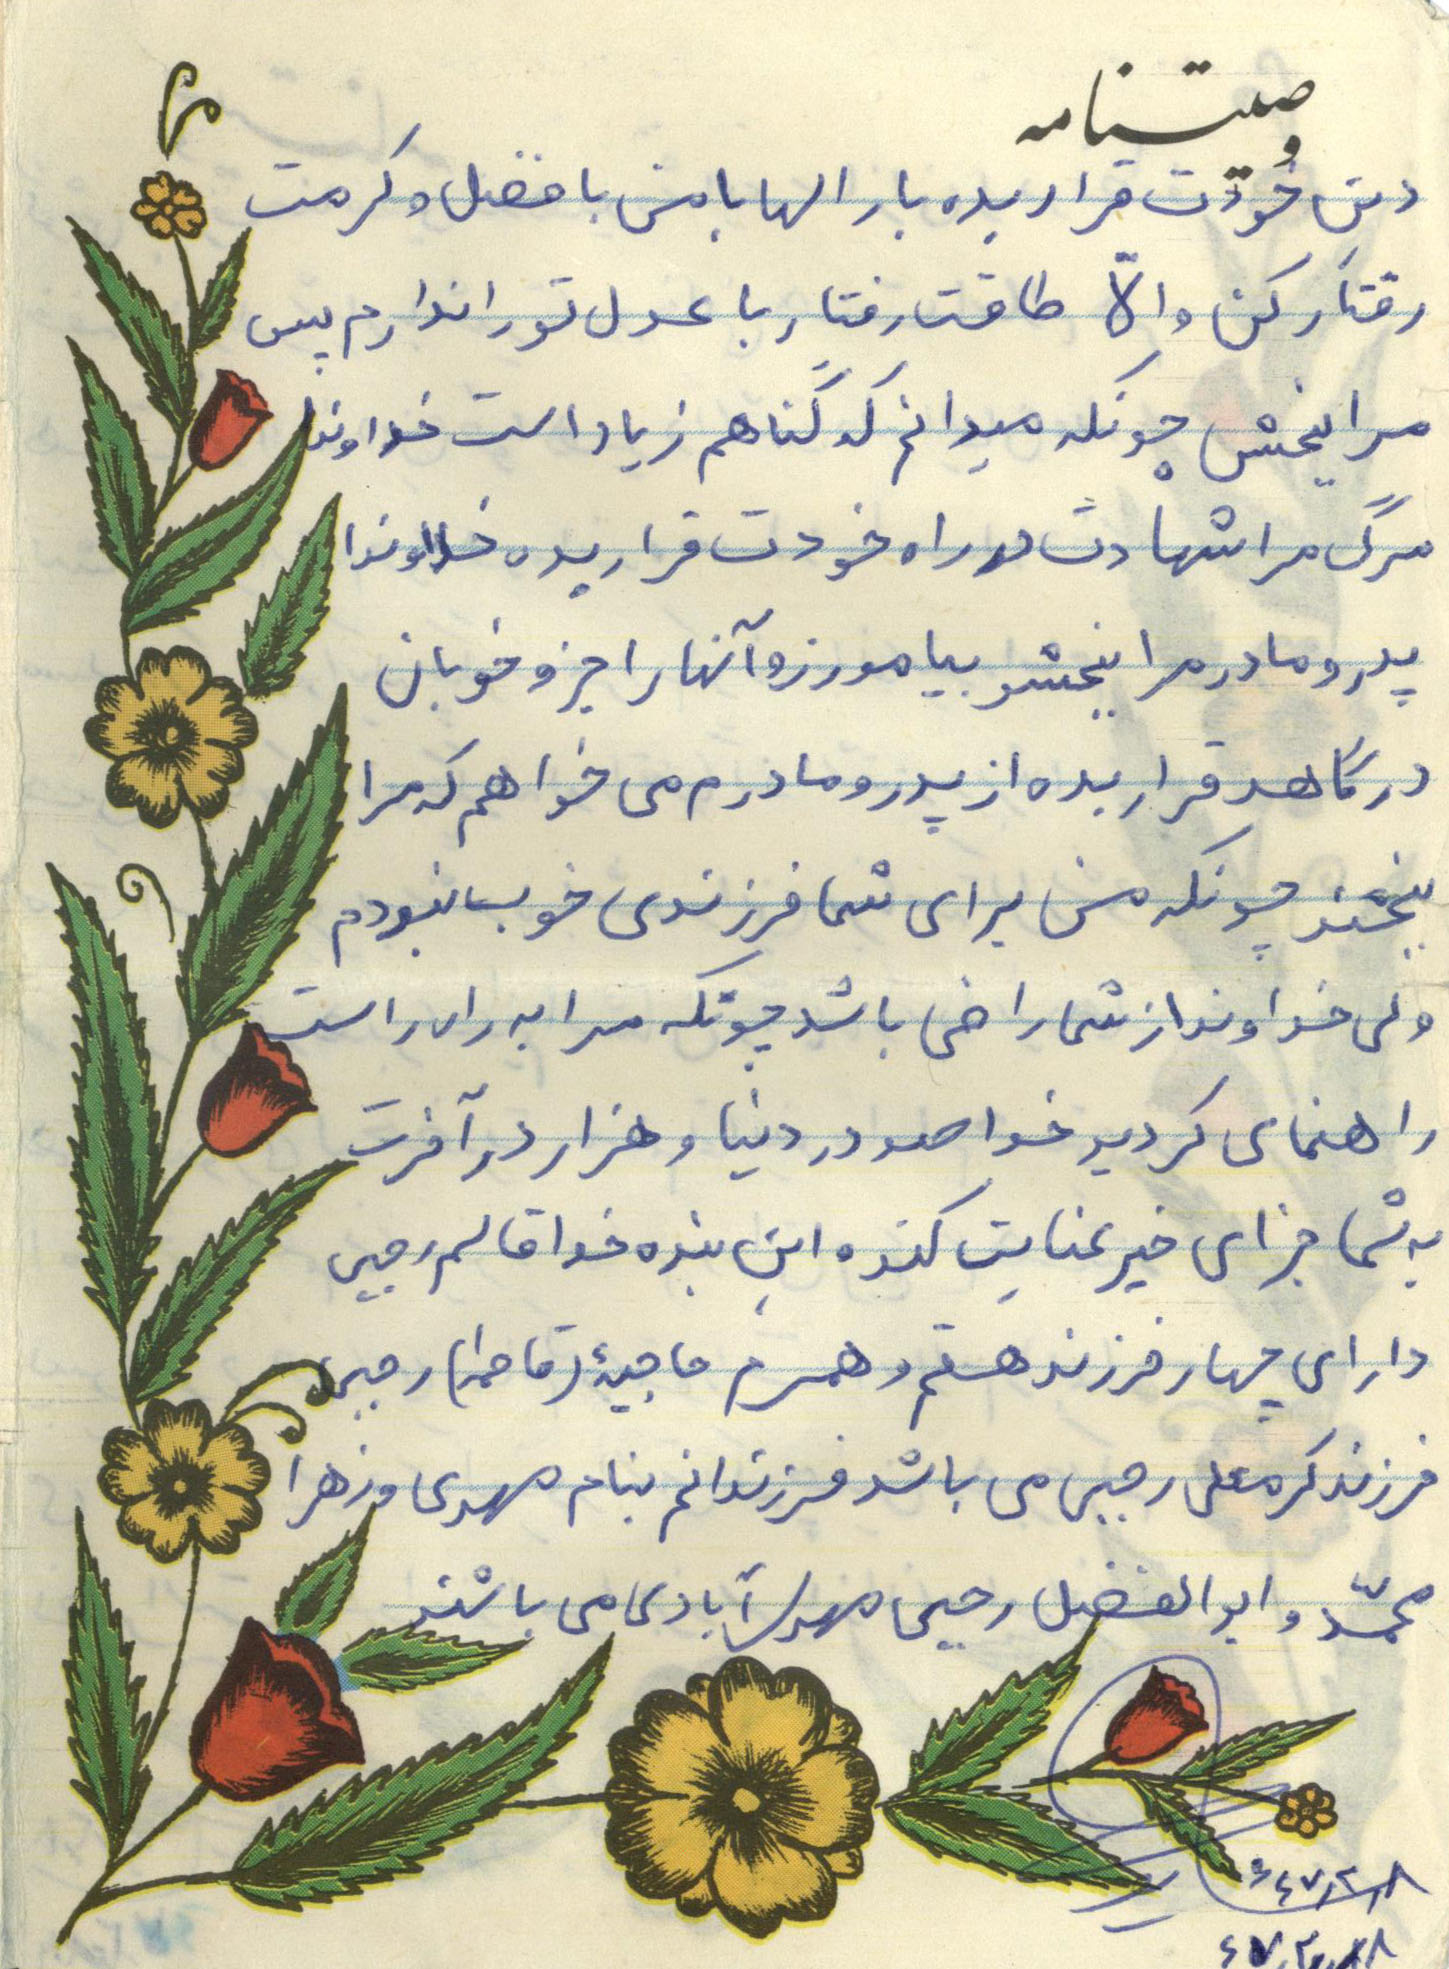 وصیتنامه
دین خودت قرار بده بار الها با من با فضل و کرمت
رفتار کن و الّا طاقت رفتار با عدل تو را ندارم پس
مرا ببخش چونکه میدانم که گناهم زیاد است خداوندا
مرگ مرا شهادت در راه خودت قرار بده خداوندا
پدر و مادر مرا ببخش و بیامورز و آنها را جزو خوبان
درگاهد قرار بده از پدر و مادرم می خواهم که مرا
ببخشند چونکه من برای شما فرزندی خوب نبودم
ولی خداوند از شما راضی باشد چونکه مرا به راه راست
راهنمای کردید خدا صد در دنیا و هزار در آخرت
به شما جزای خیر عنایت کند و این بنده خدا قاسم رجبی
دارای چهار فرزند هستم و همسرم حاجیهٔ (فاطمه) رجبی
فرزند کرمعلی رجبی می باشد فرزندانم بنام مهدی و زهرا
محمّد و ابوالفضل رجبی مهدی آبادی می باشند